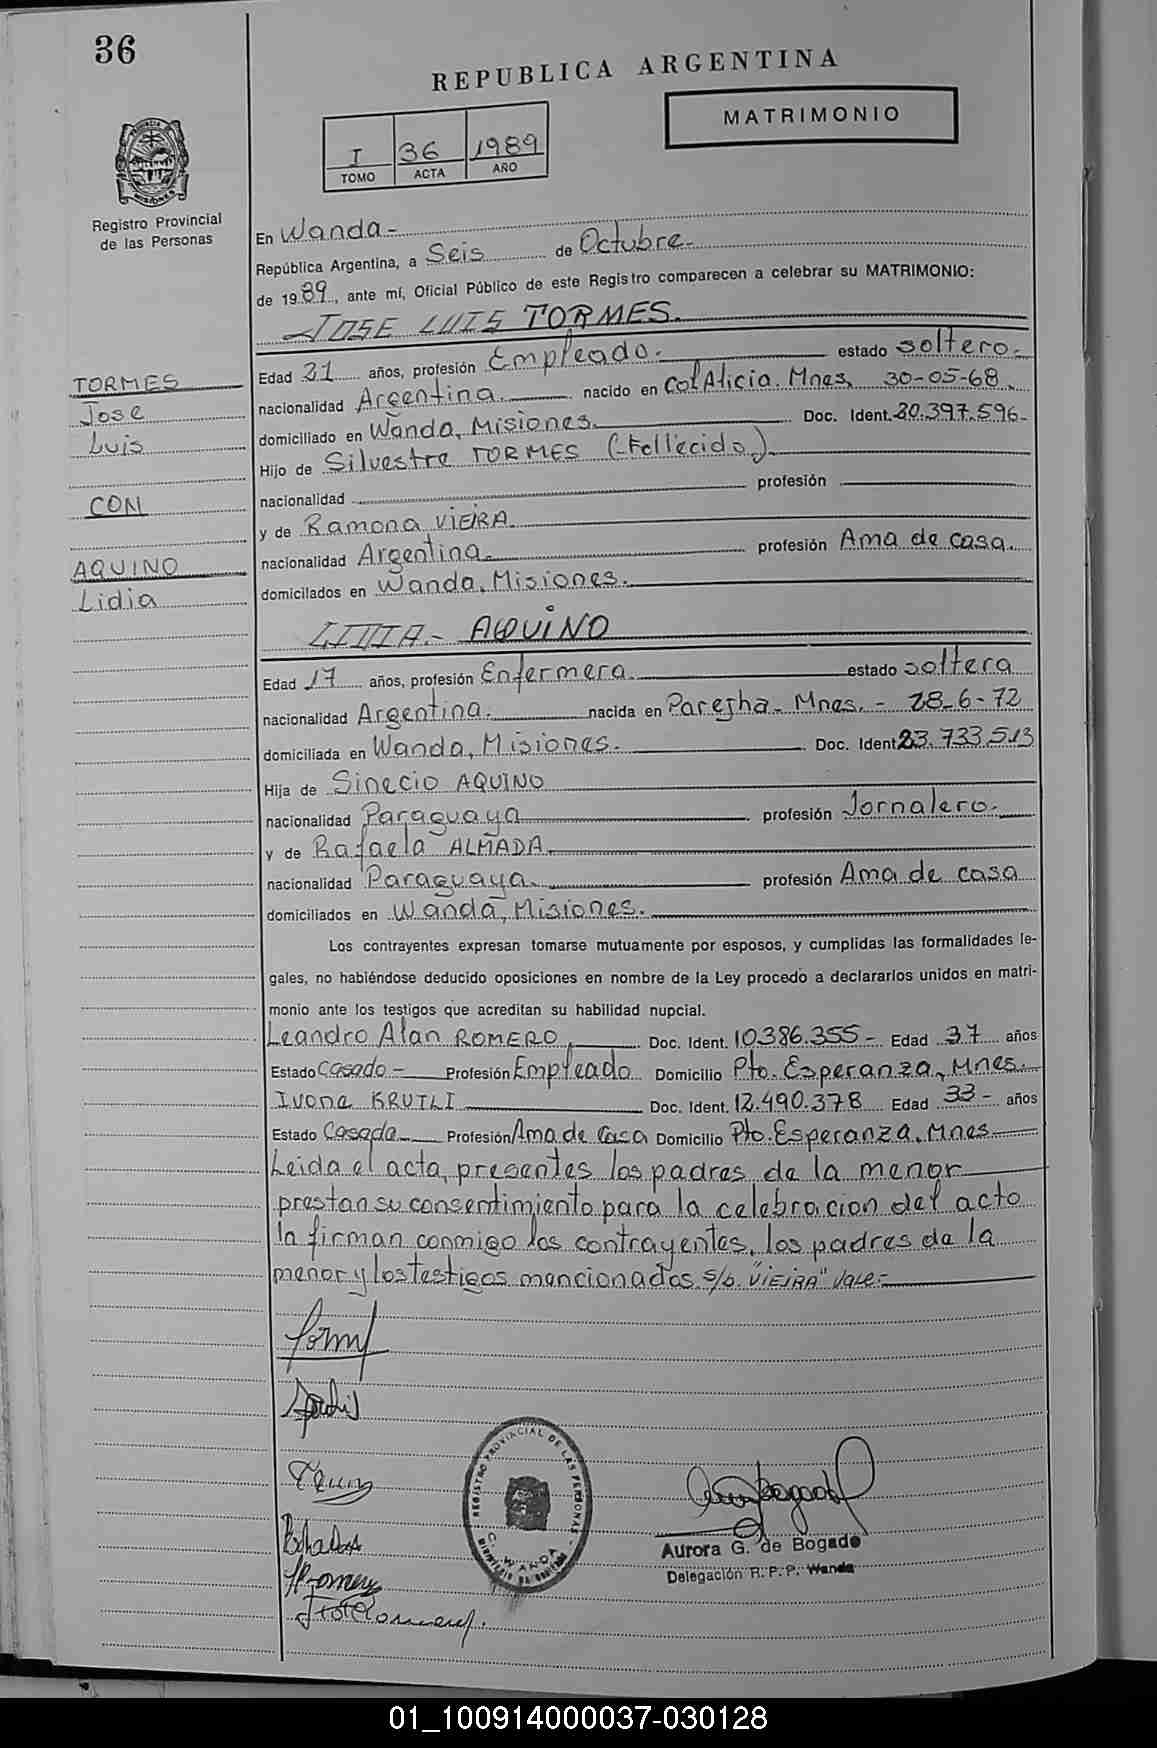 36
REPUBLICA ARGENTINA
MATRIMONIO
I 36 1989
TOMO ACTA AÑO
Registro Provincial
de las Personas
En Wanda-
República Argentina, a Seis de Octubre-
de 1989, ante mí, Oficial Público de este Registro comparecen a celebrar su MATRIMONIO:
JOSE LUIS TORMES.
Edad 21 años, profesión Empleado. estado soltero.-
nacionalidad Argentina. nacido en Col Alicia. Mnes, 30-05-68.
domiciliado en Wanda, Misiones. Doc. Ident. 20.397.596-
Hijo de Silvestre TORMES (Fallecido)
nacionalidad profesión
y de Ramona VIEIRA.
nacionalidad Argentina. profesión Ama de casa.
domicilados en Wanda, Misiones.
TORMES
Jose
Luis
CON
AQUINO
Lidia
LIDIA.- AQUINO
Edad 17 años, profesión Enfermera. estado soltera
nacionalidad Argentina. nacida en Parejha- Mnes.- 28-6-72
domiciliada en Wanda, Misiones. Doc. Ident. 23.733.513
Hija de Sinecio AQUINO
nacionalidad Paraguaya profesión Jornalero.
y de Rafaela ALMADA.
nacionalidad Paraguaya. profesión Ama de casa
domiciliados en Wanda, Misiones.
Los contrayentes expresan tomarse mutuamente por esposos, y cumplidas las formalidades le-
gales, no habiéndose deducido oposiciones en nombre de la Ley procedo a declararlos unidos en matri-
monio ante los testigos que acreditan su habilidad nupcial.
Leandro Alan ROMERO. Doc. Ident. 10.386.355- Edad 37 años
Estado Casado- Profesión Empleado Domicilio Pto. Esperanza, Mnes.
Ivone KRUTLI Doc. Ident. 12.490.378 Edad 33- años
Estado Casada- Profesión Ama de Casa Domicilio Pto. Esperanza. Mnes
Leida el acta, presentes los padres de la menor
prestan su consentimiento para la celebracion del acto
la firman conmigo los contrayentes, los padres de la
menor y los testigos mencionados. s/b. "VIEIRA" Vale.-
REGISTRO PROVINCIAL DE LAS PERSONAS
WANDA
Aurora G. de Bogado
Delegación R. P. P. Wanda
01_100914000037-030128